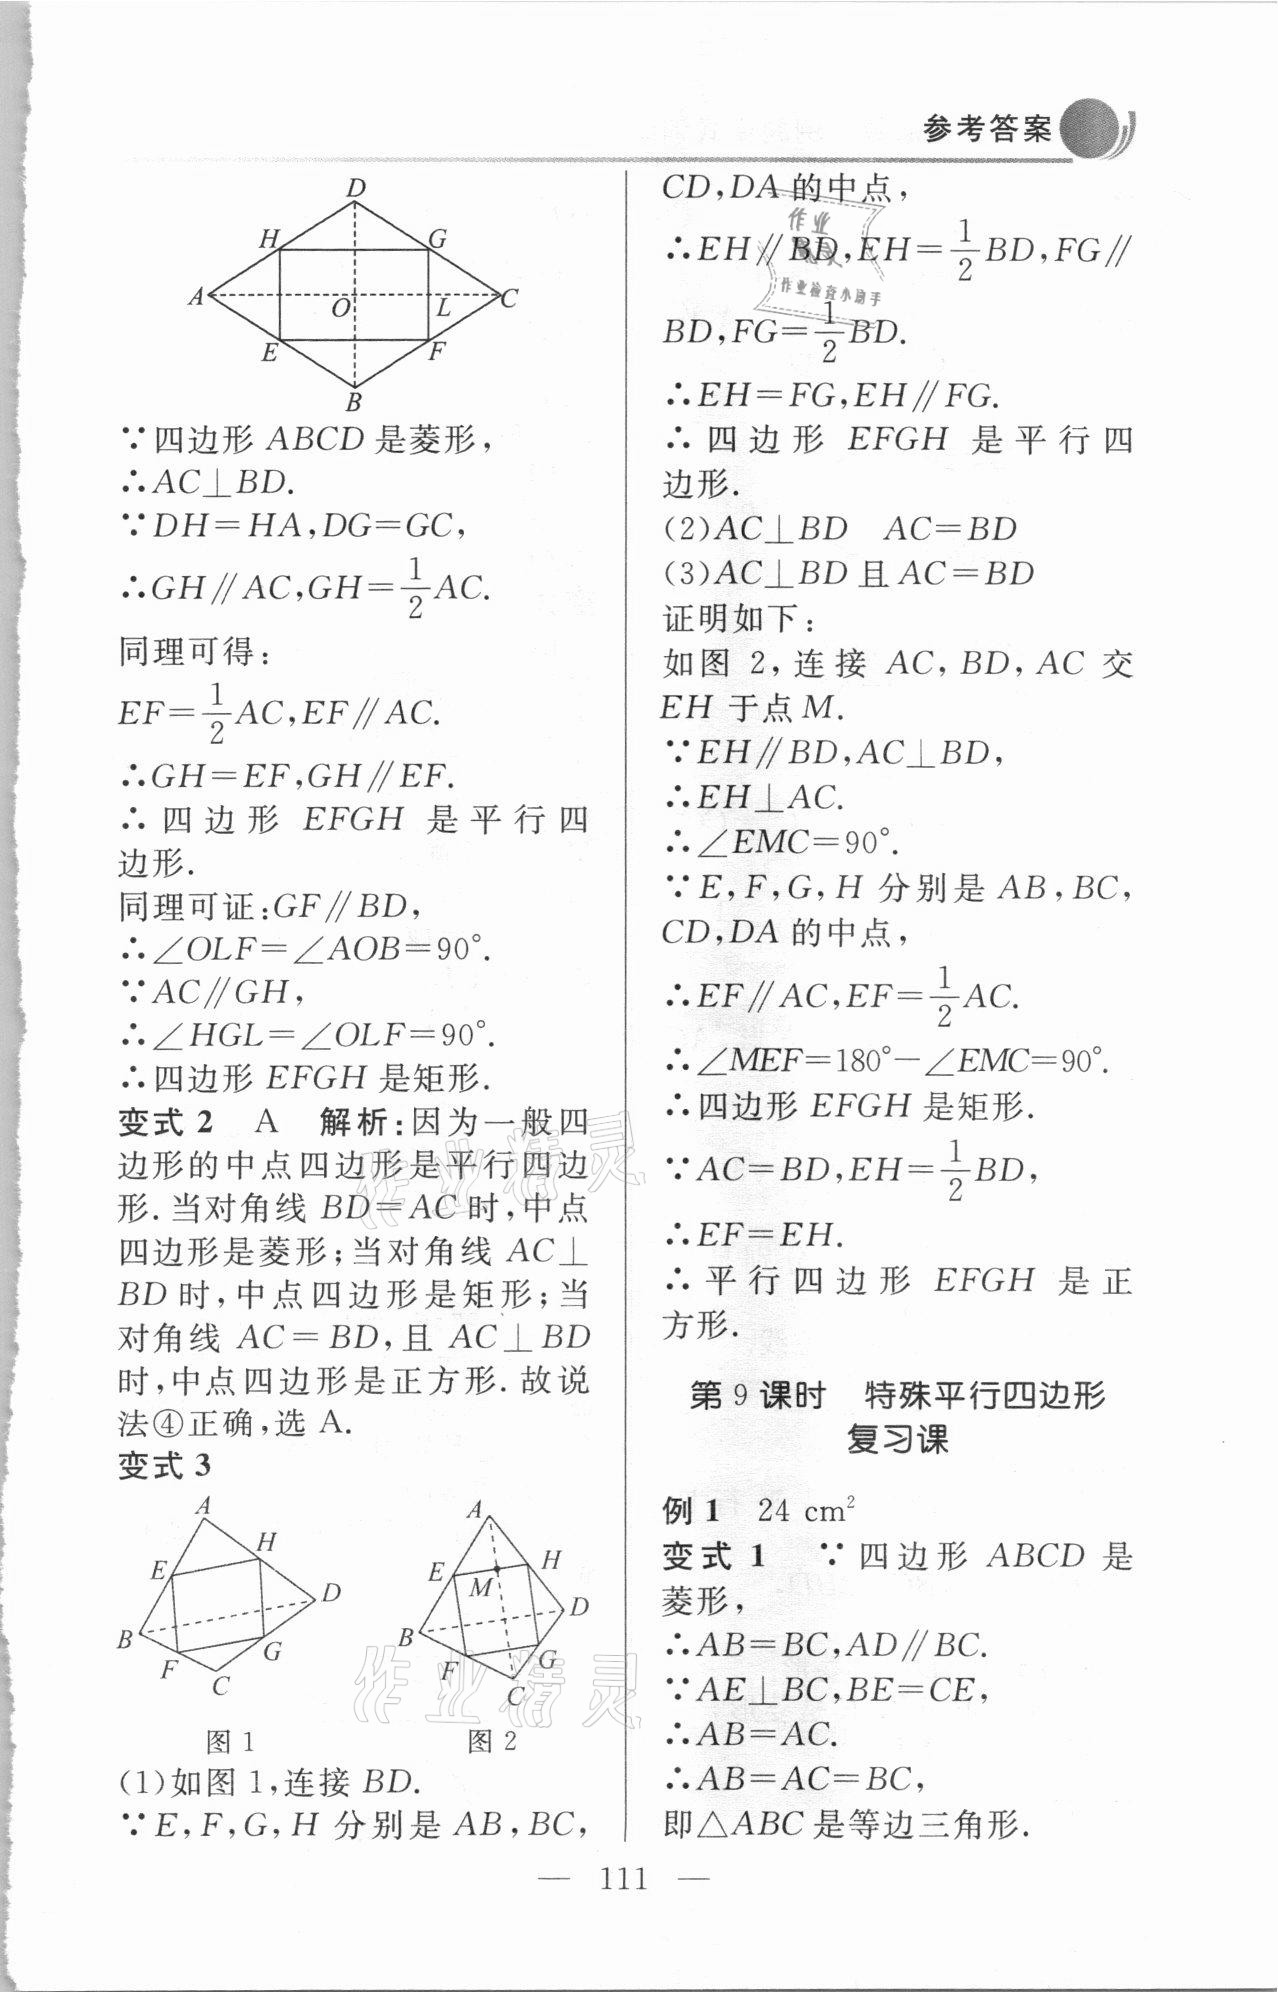 参考答案
D
H
G
A
O
L
C
E
F
B
∵四边形 ABCD 是菱形,
∴AC⊥BD.
∵DH=HA,DG=GC,
∴GH∥AC,GH=1/2AC.
同理可得:
EF=1/2AC,EF∥AC.
∴GH=EF,GH∥EF.
∴四边形 EFGH 是平行四
边形.
同理可证:GF∥BD,
∴∠OLF=∠AOB=90°.
∵AC∥GH,
∴∠HGL=∠OLF=90°.
∴四边形 EFGH 是矩形.
变式 2 A 解析:因为一般四
边形的中点四边形是平行四边
形.当对角线 BD=AC 时,中点
四边形是菱形;当对角线 AC⊥
BD 时,中点四边形是矩形;当
对角线 AC=BD,且 AC⊥BD
时,中点四边形是正方形.故说
法④正确,选 A.
变式 3
A
H
E
D
B
F
G
C
图 1
A
H
E
M
D
B
F
G
C
图 2
(1)如图 1,连接 BD.
∵E,F,G,H 分别是 AB,BC,
CD,DA 的中点,
∴EH∥BD,EH=1/2BD,FG∥
BD,FG=1/2BD.
∴EH=FG,EH∥FG.
∴四边形 EFGH 是平行四
边形.
(2)AC⊥BD AC=BD
(3)AC⊥BD 且 AC=BD
证明如下:
如图 2,连接 AC,BD,AC 交
EH 于点 M.
∵EH∥BD,AC⊥BD,
∴EH⊥AC.
∴∠EMC=90°.
∵E,F,G,H 分别是 AB,BC,
CD,DA 的中点,
∴EF∥AC,EF=1/2AC.
∴∠MEF=180°-∠EMC=90°.
∴四边形 EFGH 是矩形.
∵AC=BD,EH=1/2BD,
∴EF=EH.
∴平行四边形 EFGH 是正
方形.
第 9 课时 特殊平行四边形
复习课
例 1 24 cm²
变式 1 ∵四边形 ABCD 是
菱形,
∴AB=BC,AD∥BC.
∵AE⊥BC,BE=CE,
∴AB=AC.
∴AB=AC=BC,
即△ABC 是等边三角形.
作业
作业检查小助手
作业精灵
作业精灵
— 111 —